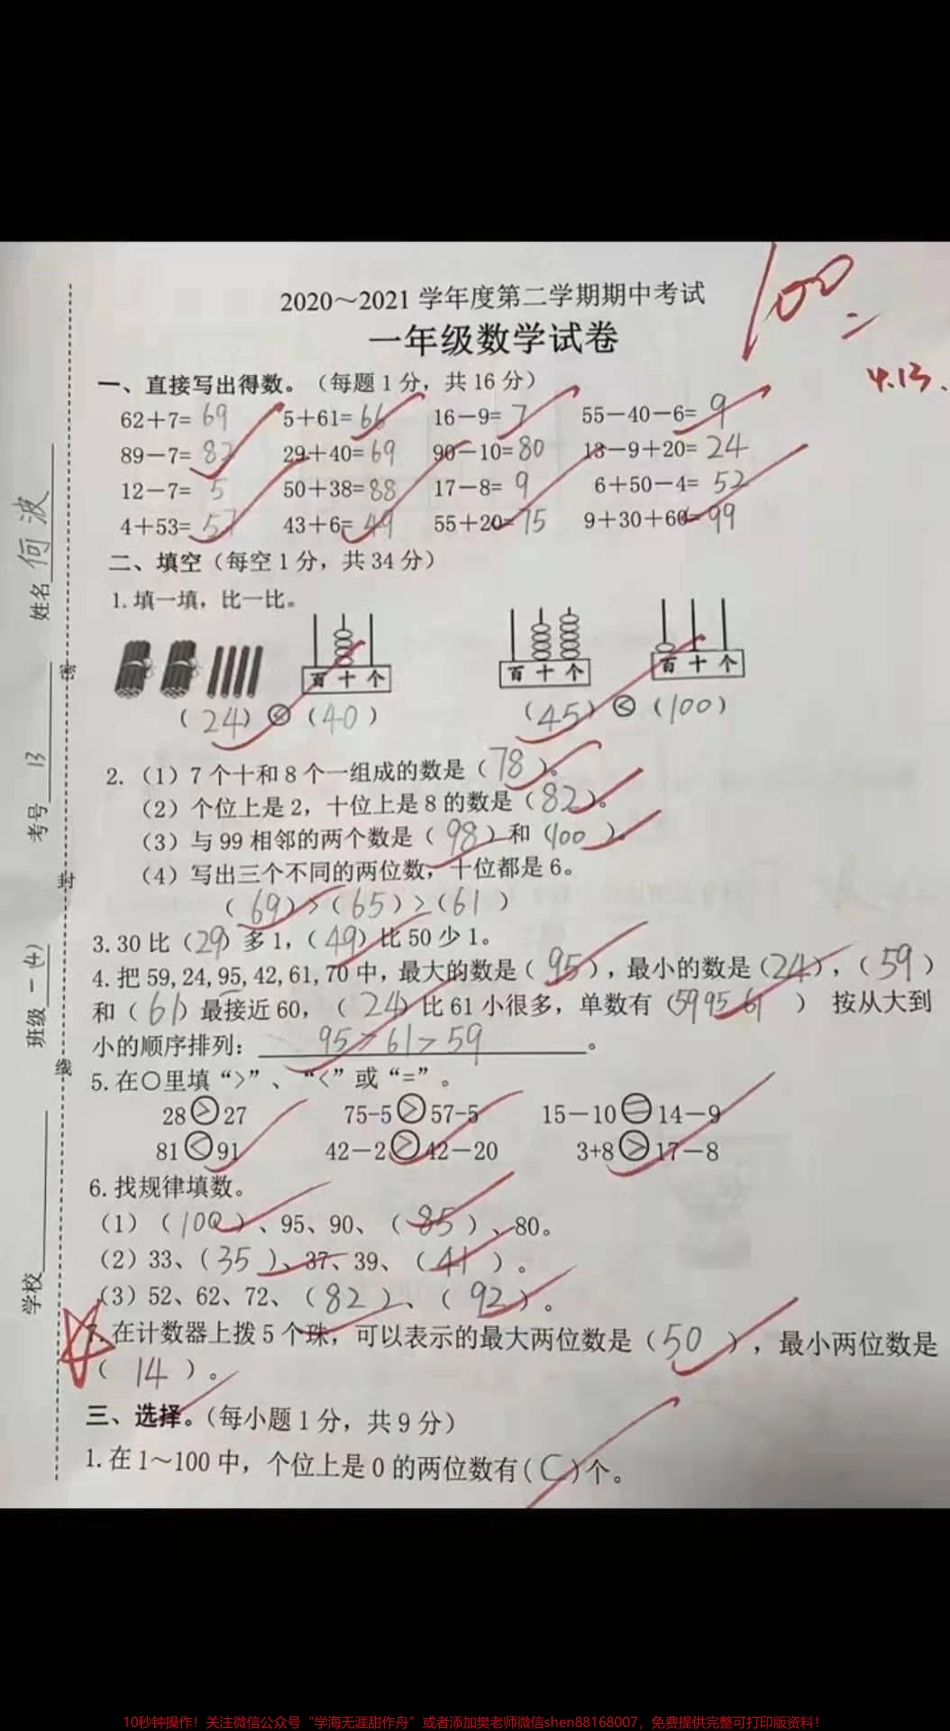 2020～2021 学年度第二学期期中考试
100
一年级数学试卷
4.13.
一、直接写出得数。（每题 1 分，共 16 分）
62＋7= 69 5＋61= 66 16－9= 7 55－40－6= 9
89－7= 82 29＋40= 69 90－10= 80 13－9＋20= 24
12－7= 5 50＋38= 88 17－8= 9 6＋50－4= 52
4＋53= 57 43＋6= 49 55＋20= 75 9＋30＋60= 99
二、填空（每空 1 分，共 34 分）
1. 填一填，比一比。
百 十 个 百 十 个 百 十 个
（ 24 ） < （ 40 ） （ 45 ） < （ 100 ）
2.（1）7 个十和 8 个一组成的数是（ 78 ）。
（2）个位上是 2，十位上是 8 的数是（ 82 ）。
（3）与 99 相邻的两个数是（ 98 ）和（ 100 ）。
（4）写出三个不同的两位数，十位都是 6。
（ 69 ）>（ 65 ）>（ 61 ）
3. 30 比（ 29 ）多 1，（ 49 ）比 50 少 1。
4. 把 59,24,95,42,61,70 中，最大的数是（ 95 ），最小的数是（ 24 ），（ 59 ）
和（ 61 ）最接近 60，（ 24 ）比 61 小很多，单数有（ 59 95 61 ） 按从大到
小的顺序排列： 95 > 61 > 59 。
5. 在○里填“>”、“<”或“=”。
28 > 27 75-5 > 57-5 15－10 = 14－9
81 < 91 42－2 > 42－20 3+8 > 17－8
6. 找规律填数。
（1）（ 100 ）、95、90、（ 85 ）、80。
（2）33、（ 35 ）、37、39、（ 41 ）。
（3）52、62、72、（ 82 ）、（ 92 ）。
7. 在计数器上拨 5 个珠，可以表示的最大两位数是（ 50 ），最小两位数是
（ 14 ）。
三、选择。（每小题 1 分，共 9 分）
1. 在 1～100 中，个位上是 0 的两位数有（ C ）个。
学校
班级 一(4)
考号 13
姓名 何波
密
封
线
10秒钟操作！关注微信公众号“学海无涯甜作舟”或者添加樊老师微信shen88168007，免费提供完整可打印版资料！